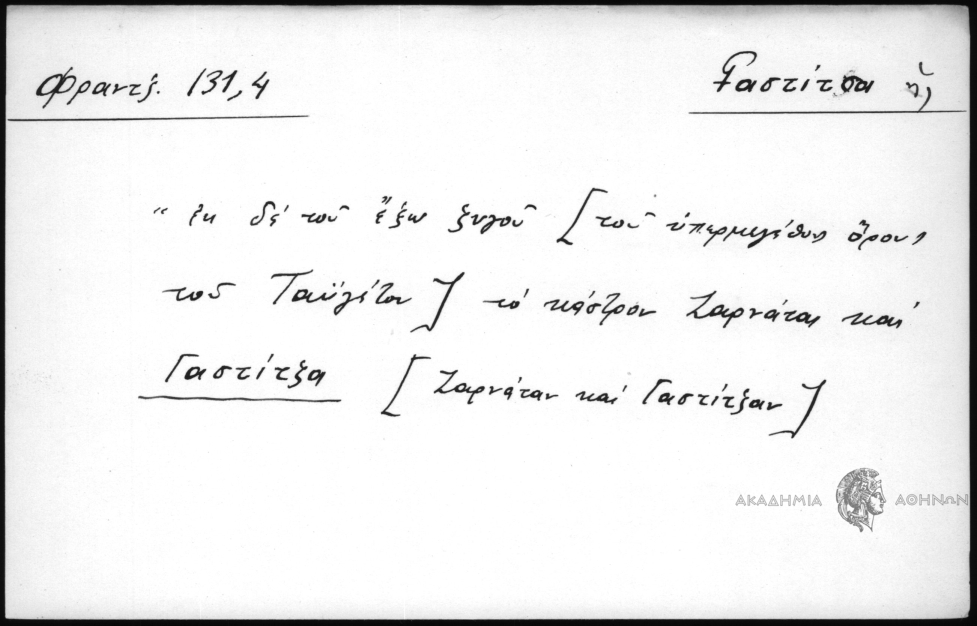 Φραντζ. 131,4
Γαστίτσα ἡ
“ ἐκ δὲ τοῦ ἔξω ζυγοῦ [τοῦ ὑπερμεγέθους ὄρους
τοῦ Ταϋγέτου] τὸ κάστρον Ζαρνάτας καὶ
Γαστίτζα [Ζαρνάταν καὶ Γαστίτζαν]
ΑΚΑΔΗΜΙΑ ΑΘΗΝΩΝ